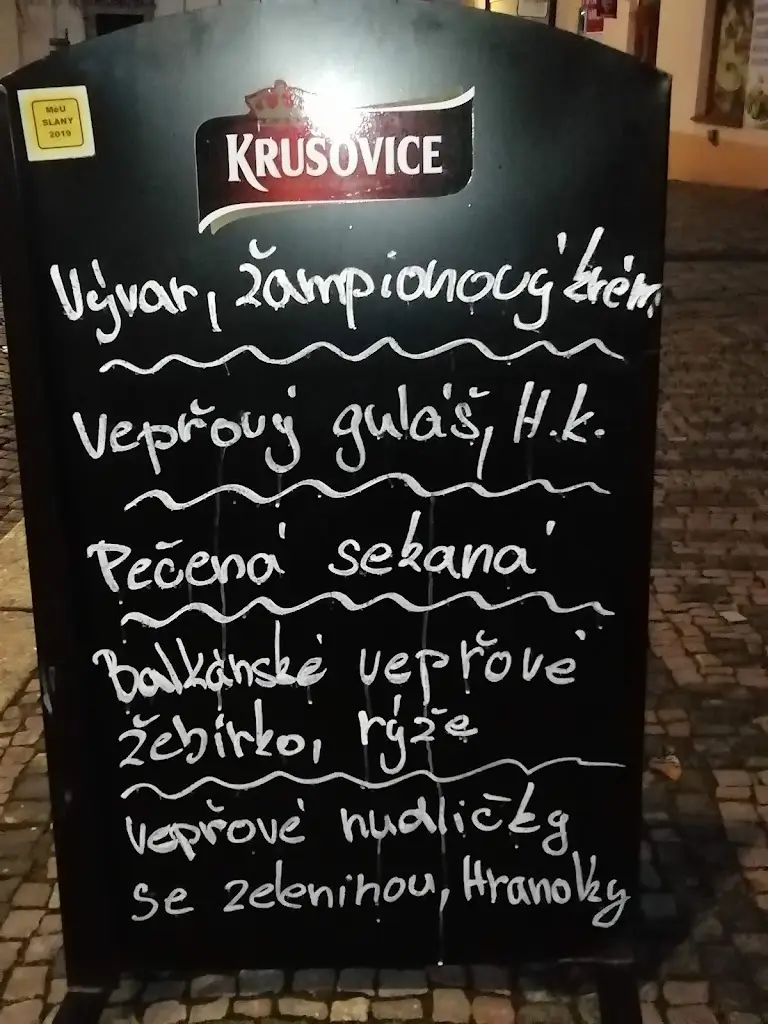 MěÚ
SLANÝ
2019
KRUSOVICE
Vývar, žampionový krém
Vepřový guláš, H.k.
Pečená sekaná
Balkánské vepřové
žebírko, rýže
Vepřové nudličky
se zeleninou, Hranolky